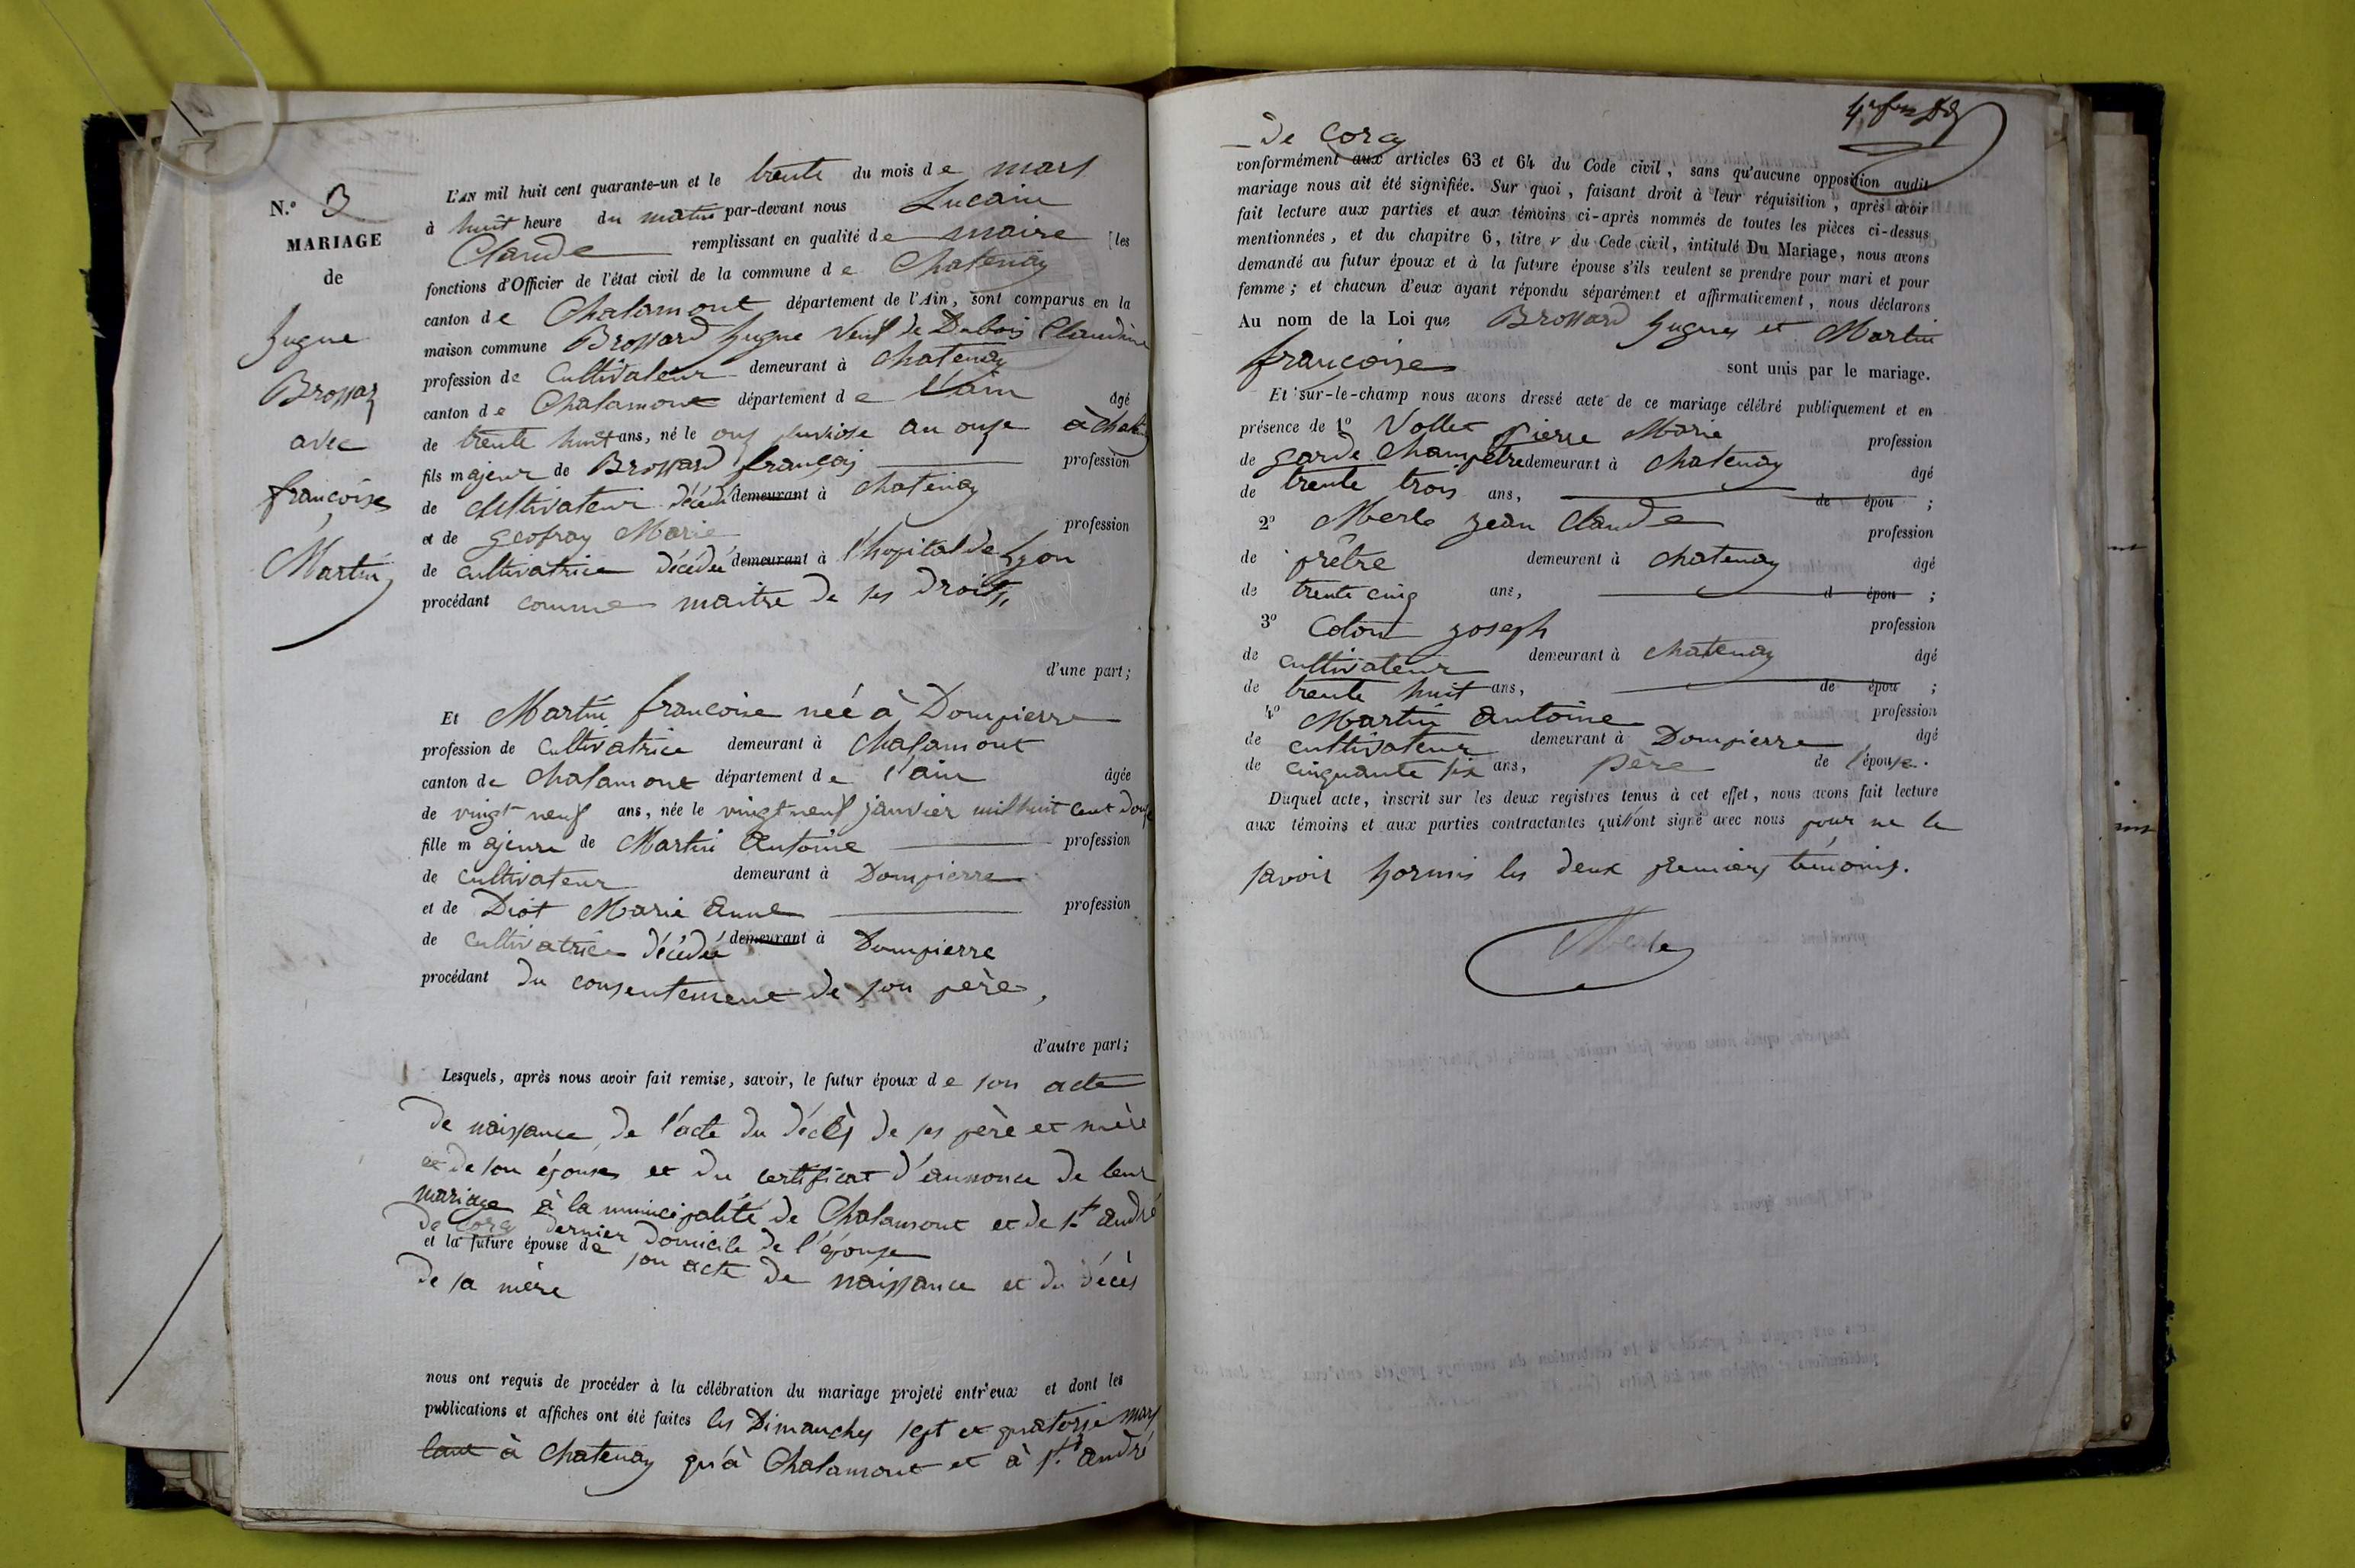 N.° 3
MARIAGE
de
hugue
Brossar
avec
francoise
Martin
L'AN mil huit cent quarante-un et le trente du mois de mars
à huit heure du matin par-devant nous Lucain
Claude remplissant en qualité de maire [les
fonctions d'Officier de l'état civil de la commune de Chatenay
canton de Chalamont département de l'Ain, sont comparus en la
maison commune Brossard hugue veuf de Dubois Claudine
profession de cultivateur demeurant à chatenay
canton de Chalamont département de l'ain âgé
de trente huit ans, né le onze pluviose an onze à chatenay
fils majeur de Brossard françois profession
de cultivateur décédé demeurant à chatenay
et de geofray Marie profession
de cultivatrice décédée demeurant à l'hopital de Lyon
procédant comme maitre de ses droits,
d'une part;
Et Martin francoise née à Dompierre
profession de cultivatrice demeurant à chalamont
canton de chalamont département de l'ain âgée
de vingt neuf ans, née le vingt neuf janvier mil huit cent douze
fille majeure de Martin Antoine profession
de cultivateur demeurant à Dompierre
et de Diot Marie anne profession
de cultivatrice décédée demeurant à Dompierre
procédant du consentement de son père,
d'autre part;
Lesquels, après nous avoir fait remise, savoir, le futur époux de son acte
de naissance, de l'acte du décès de ses père et mère
et de son épouse et du certificat d'annonce de leur
mariage à la municipalité de Chalamont et de st andré
de Corcy dernier domicile de l'épouse
et la future épouse de son acte de naissance et du décès
de sa mère
nous ont requis de procéder à la célébration du mariage projeté entr'eux et dont les
publications et affiches ont été faites les Dimanches sept et quatorze mars
tant à chatenay qu'à Chalamont et à st andré
de Corcy
conformément aux articles 63 et 64 du Code civil, sans qu'aucune opposition audit
mariage nous ait été signifiée. Sur quoi, faisant droit à leur réquisition, après avoir
fait lecture aux parties et aux témoins ci-après nommés de toutes les pièces ci-dessus
mentionnées, et du chapitre 6, titre v du Code civil, intitulé Du Mariage, nous avons
demandé au futur époux et à la future épouse s'ils veulent se prendre pour mari et pour
femme; et chacun d'eux ayant répondu séparément et affirmativement, nous déclarons
Au nom de la Loi que Brossard hugues et Martin
françoise sont unis par le mariage.
Et sur-le-champ nous avons dressé acte de ce mariage célébré publiquement et en
présence de 1° Vollet pierre Marie profession
de garde champêtre demeurant à chatenay âgé
de trente trois ans, de épou ;
2° Merle jean claude profession
de prêtre demeurant à chatenay âgé
de trente cinq ans, d épou ;
3° Colon joseph profession
de cultivateur demeurant à chatenay âgé
de trente huit ans, de épou ;
4° Martin antoine profession
de cultivateur demeurant à Dompierre, âgé
de cinquante six ans, père de l'épouse.
Duquel acte, inscrit sur les deux registres tenus à cet effet, nous avons fait lecture
aux témoins et aux parties contractantes qui n'ont signé avec nous pour ne le
savoir hormis les deux premiers témoins.
Merle